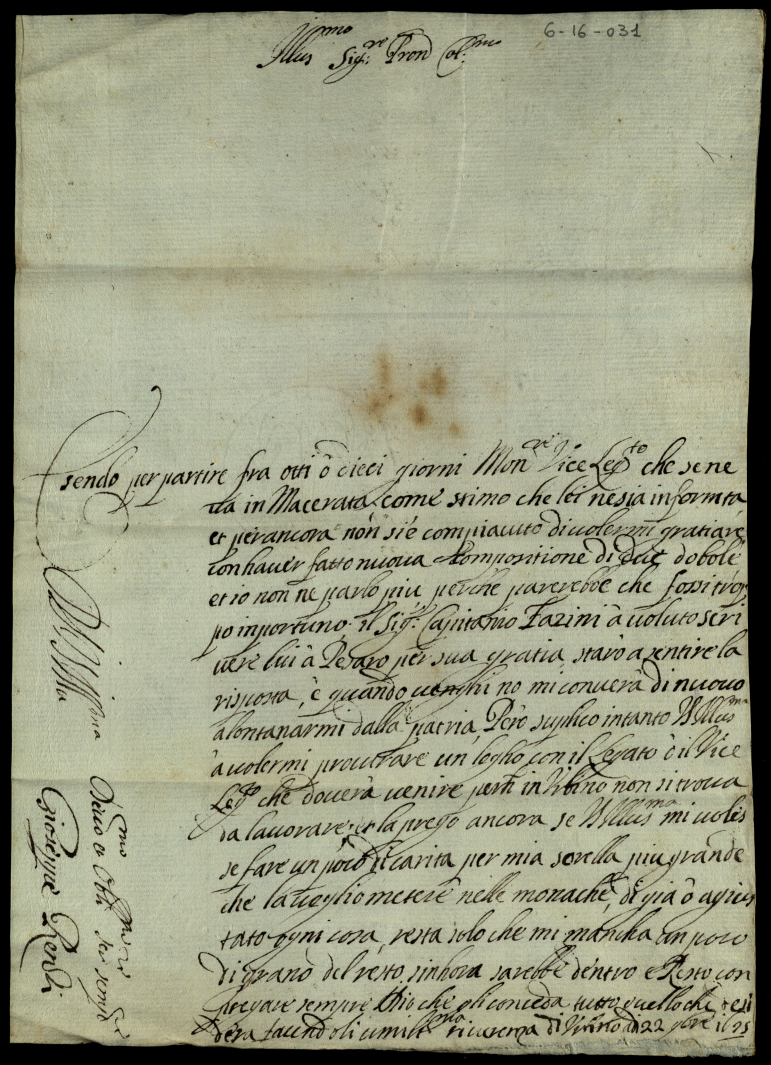 6-16-031
Illus.mo Sig.re Pron Col.mo
sendo per partire fra otti ò dieci giorni Mon.re Vice Leg.to che se ne
va in Macerata come stimo che lei ne sia informta
et per ancora non si è compiaciuto di volermi gratiare
con haver fatto nuova Compositione di due dobole
et io non ne parlo piu perche parerebbe che fossi trop
po inportuno. il Sig.re Capitanio Fazini à voluto scri
vere lui à Pesaro per sua gratia starò a sentire la
risposta, è quando venghi no mi converà di nuovo
alontanarmi dalla patria Però suplico intanto V Illus.ma
à volermi procurare un logho con il Legato ò il Vice
Leg.to che doverà venire perch in Urbino non si trova
da lavorare, et la prego ancora se V Illus.ma mi voles
se fare un poco di carita per mia sorella piu grande
che la voglio metere nelle monache, di già ò agius
tato ogni cosa, resta solo che mi mancha un poco
di grano del resto sinhora sarebbe dentro e Resto con
pregare sempre Dio che gli conceda tutto quello che desi
dera facendoli umil.ma riverenza di Urbino di 22 9bre il 95
Di V S Ill.ma
Devo e Obl.mo Ser.re semp.re
Gioseppe Rondi